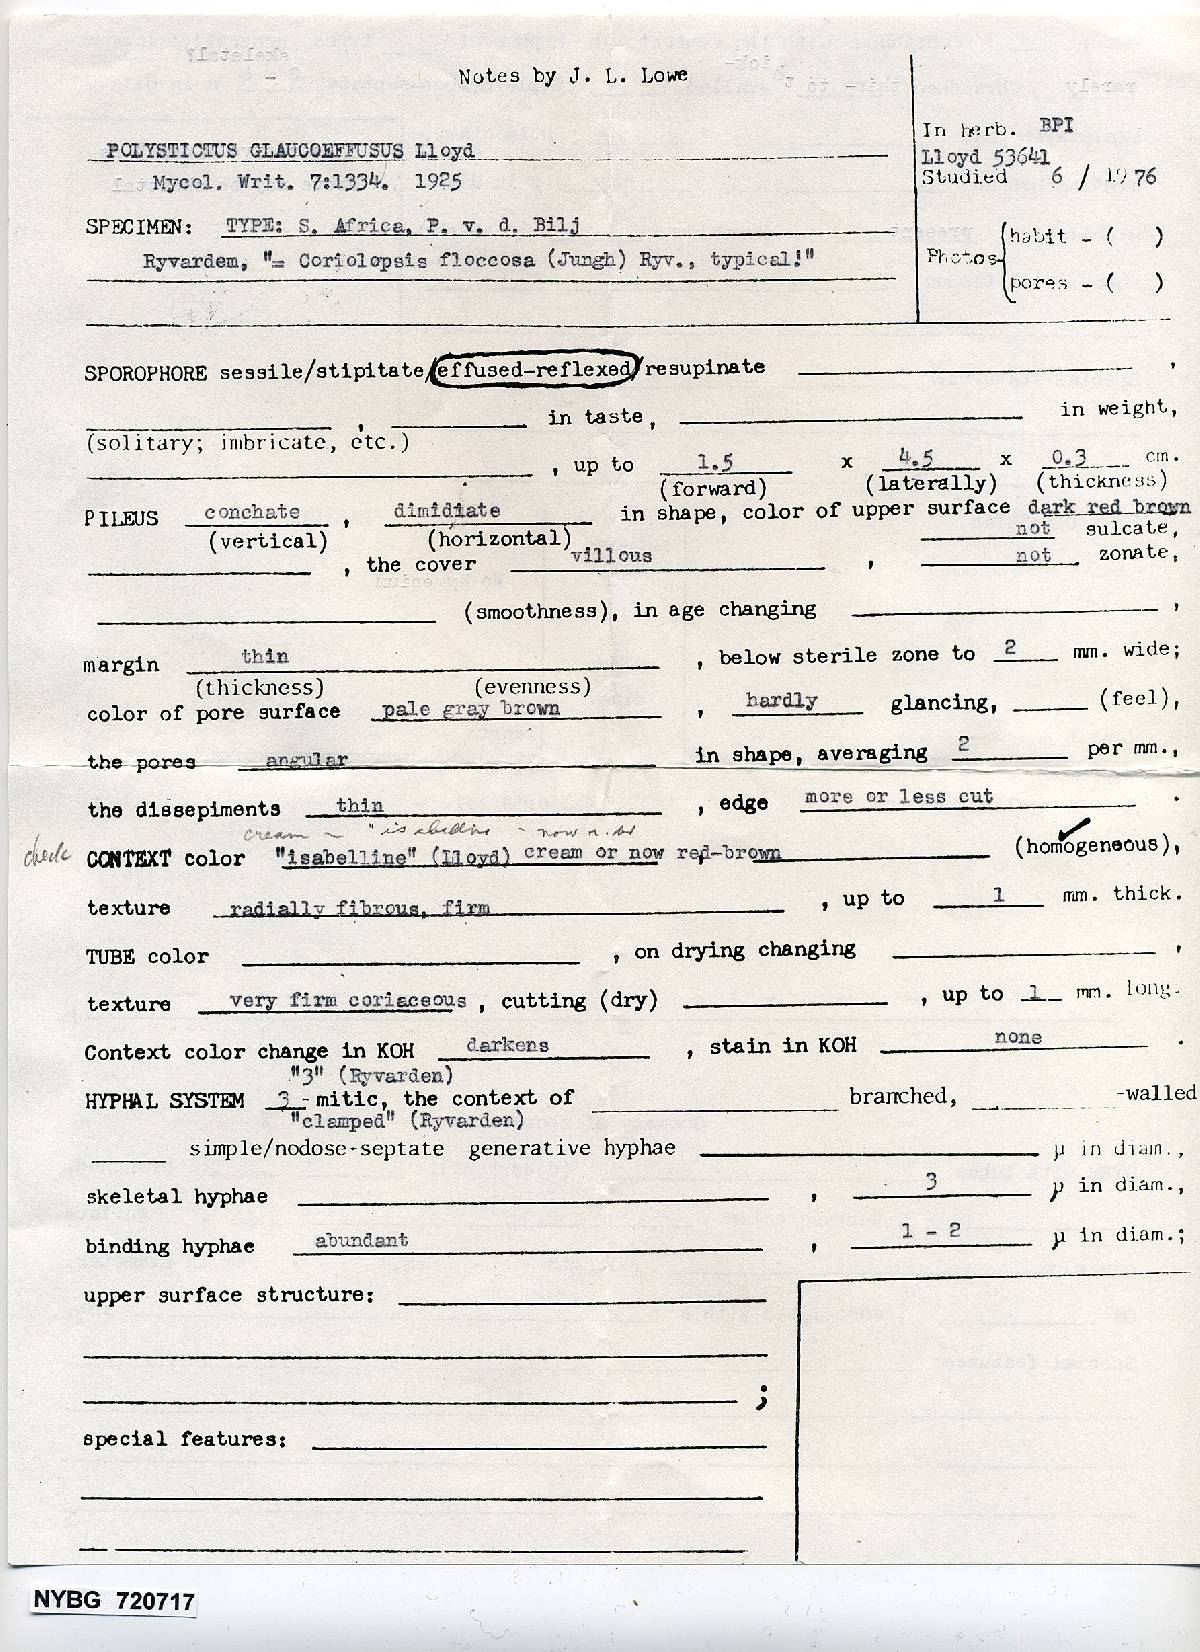 Notes by J. L. Lowe
In herb. BPI
Lloyd 53641
Studied 6 / 1976
POLYSTICTUS GLAUCOEFFUSUS Lloyd
Mycol. Writ. 7:1334. 1925
SPECIMEN: TYPE: S. Africa, P. v. d. Bilj
Ryvardem, "= Coriolopsis floccosa (Jungh) Ryv., typical!"
Photos
habit - ( )
pores - ( )
SPOROPHORE sessile/stipitate/effused-reflexed/resupinate ,
, in taste, in weight,
(solitary; imbricate, etc.)
, up to 1.5 x 4.5 x 0.3 cm.
(forward) (laterally) (thickness)
PILEUS conchate , dimidiate in shape, color of upper surface dark red brown
(vertical) (horizontal) not sulcate,
, the cover villous , not zonate,
(smoothness), in age changing ,
margin thin , below sterile zone to 2 mm. wide;
(thickness) (evenness)
color of pore surface pale gray brown , hardly glancing, (feel),
the pores angular in shape, averaging 2 per mm.,
the dissepiments thin , edge more or less cut .
cream "isabelline" now
check CONTEXT color "isabelline" (Lloyd) cream or now red-brown (homogeneous),
texture radially fibrous, firm , up to 1 mm. thick.
TUBE color , on drying changing ,
texture very firm coriaceous , cutting (dry) , up to 1 mm. long.
Context color change in KOH darkens , stain in KOH none .
"3" (Ryvarden)
HYPHAL SYSTEM 3 - mitic, the context of branched, -walled
"clamped" (Ryvarden)
simple/nodose-septate generative hyphae µ in diam.,
skeletal hyphae , 3 µ in diam.,
binding hyphae abundant , 1 - 2 µ in diam.;
upper surface structure:
;
special features:
NYBG 720717